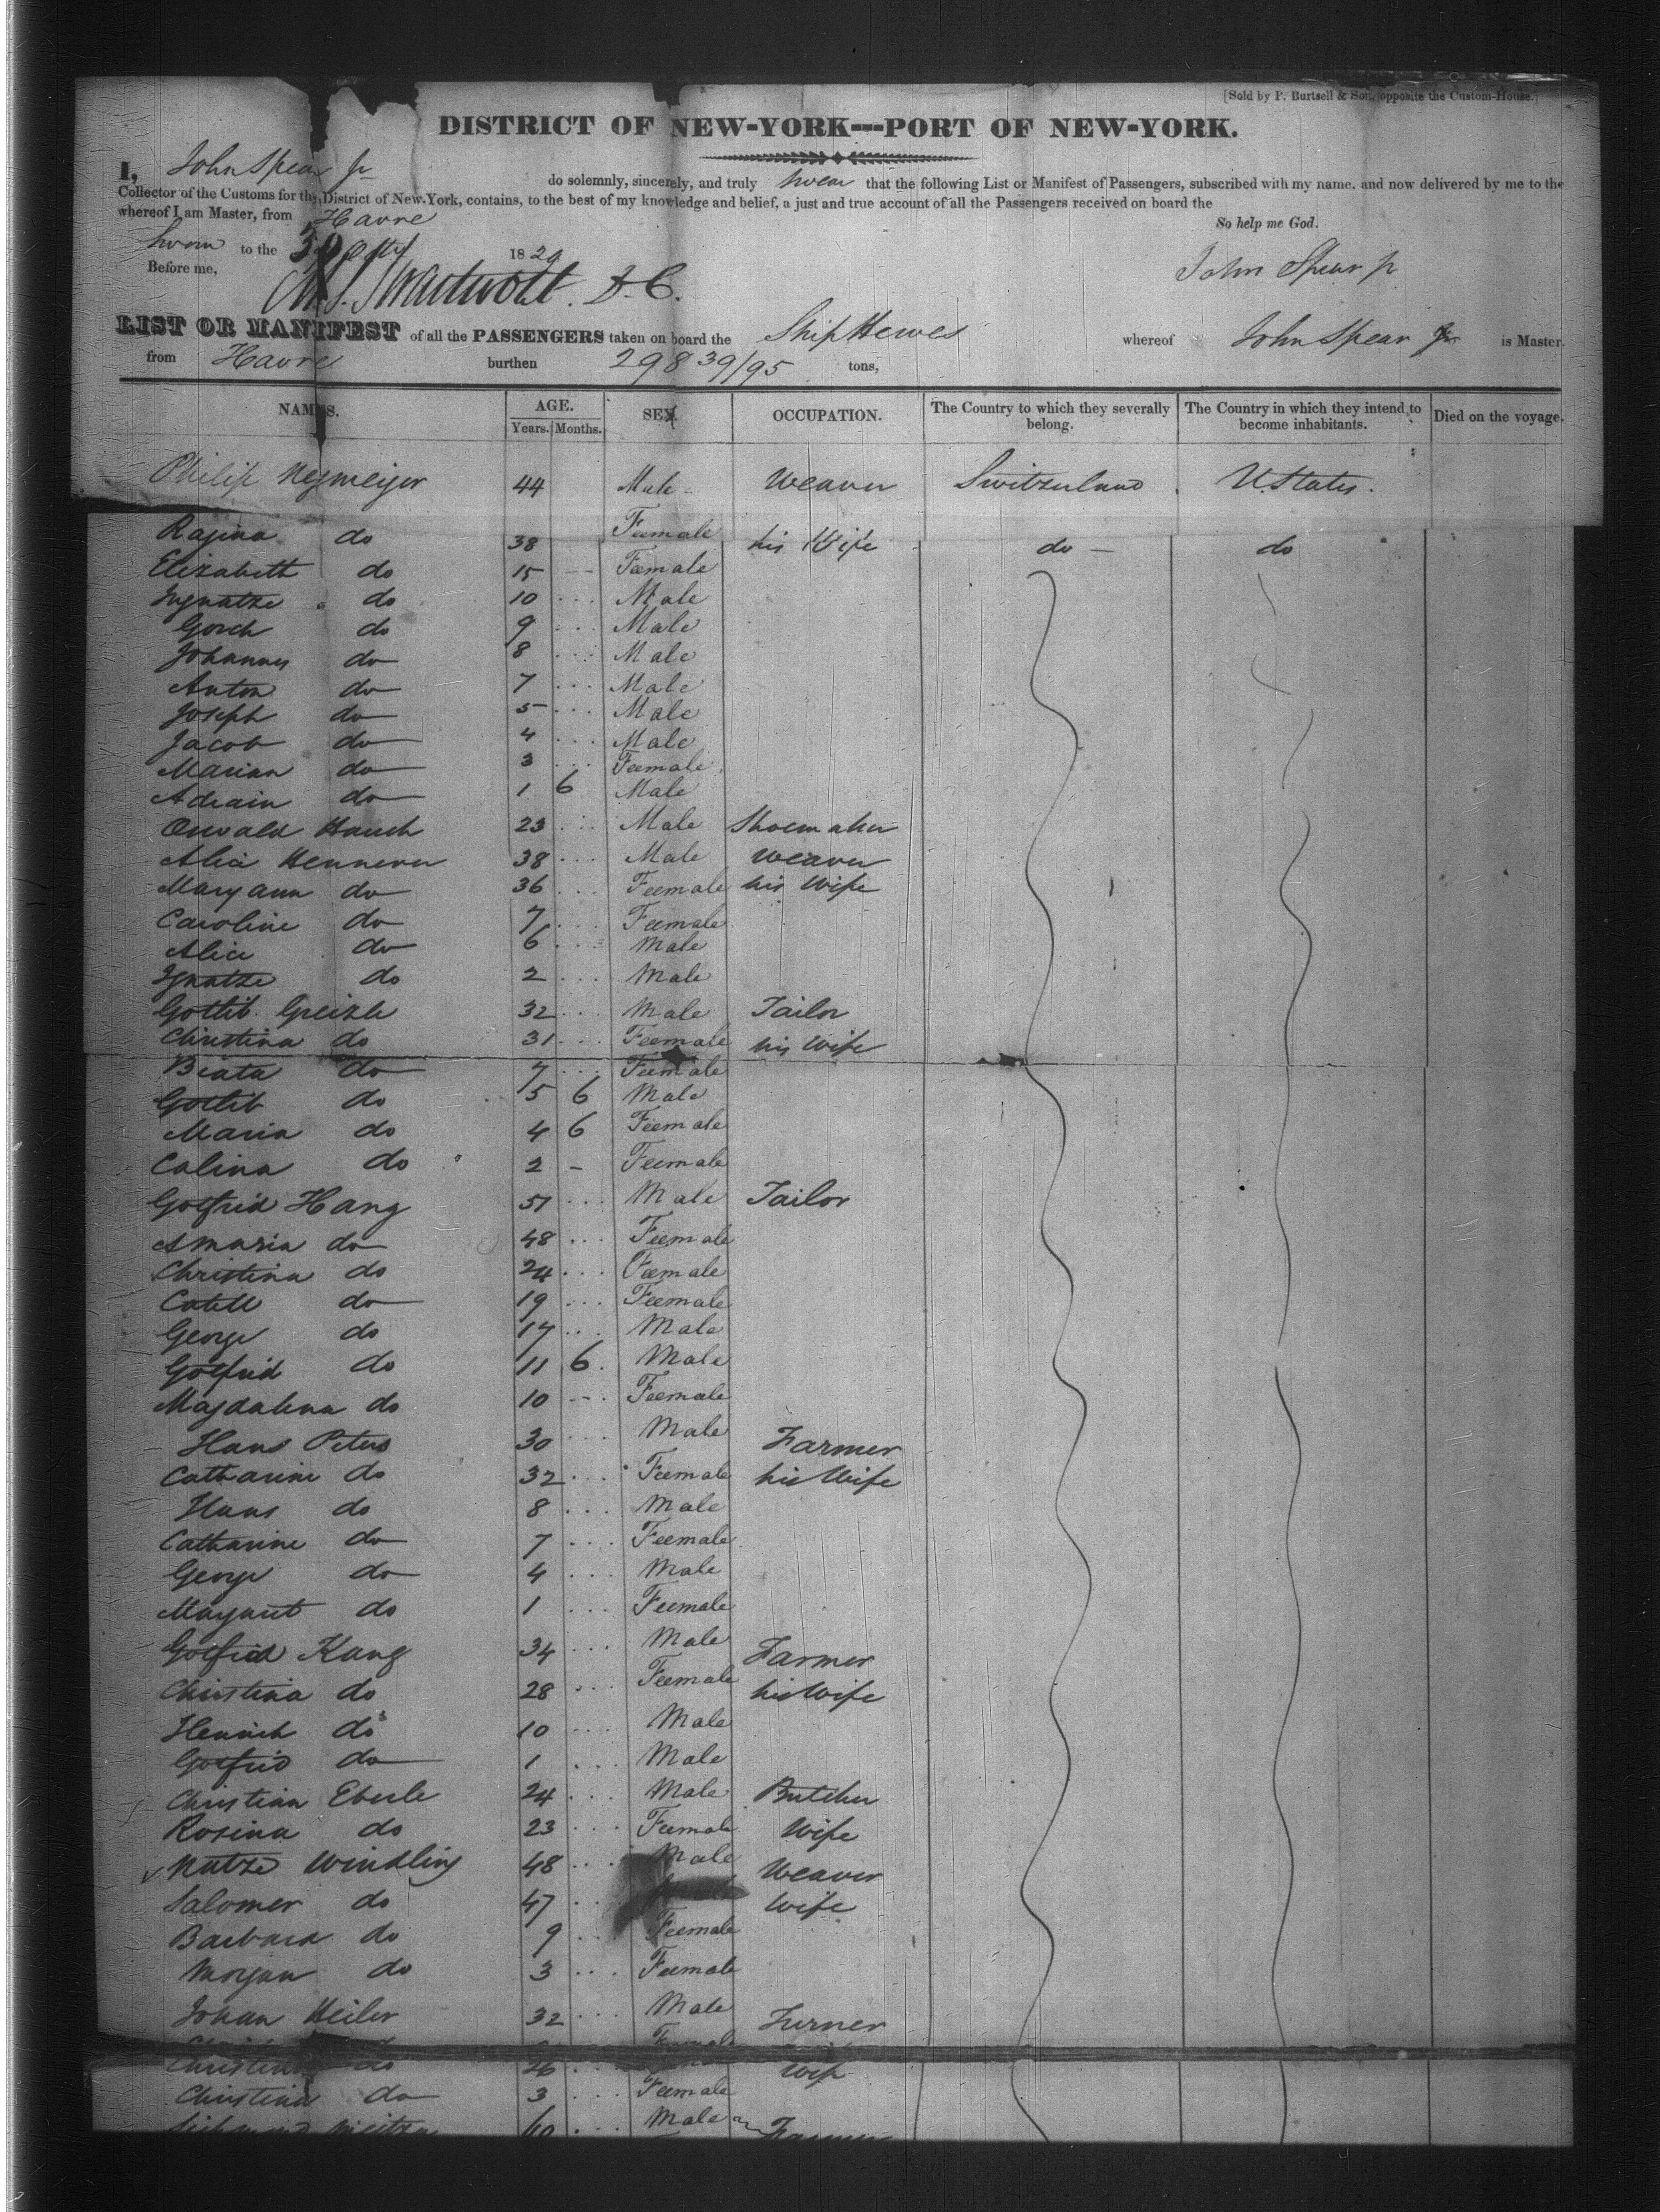 [Sold by P. Burtsell & Son, opposite the Custom-House.]
DISTRICT OF NEW-YORK---PORT OF NEW-YORK.
I, John Spear Jr do solemnly, sincerely, and truly swear that the following List or Manifest of Passengers, subscribed with my name, and now delivered by me to the
Collector of the Customs for the District of New-York, contains, to the best of my knowledge and belief, a just and true account of all the Passengers received on board the
whereof I am Master, from Havre
So help me God.
Sworn to the 18 29
Before me,
John Spear Jr
LIST OR MANIFEST of all the PASSENGERS taken on board the Ship Hewes whereof John Spear Jr is Master,
from Havre burthen 298 39/95 tons,
NAMES. AGE. SEX OCCUPATION. The Country to which they severally belong. The Country in which they intend to become inhabitants. Died on the voyage.
Years. Months.
Philip 44 Male Weaver Switzerland U. States.
Ragina do 38 Feemale his Wife do do
Elizabeth do 15 Feemale
do 10 Male
Gorch do 9 Male
Johannes do 8 Male
Anton do 7 Male
Joseph do 5 Male
Jacob do 4 Male
Marian do 3 Feemale
Adrain do 1 6 Male
Oswald Hauch 23 Male Shoemaker
38 Male Weaver
Mary ann do 36 Feemale his Wife
Caroline do 7 Feemale
do 6 Male
Ignatze do 2 Male
Gottlib Greizle 32 Male Tailor
Christina do 31 Feemale his Wife
Biata do 7 Feemale
Gottlib do 5 6 Male
Maria do 4 6 Feemale
Calina do 2 - Feemale
Gotfrid Hang 51 Male Tailor
Amaria do 48 Feemale
Christina do 24 Feemale
do 19 Feemale
George do 17 Male
Gotfrid do 11 6 Male
Magdalena do 10 Feemale
Hans Peters 30 Male Farmer
Catharine do 32 Feemale his Wife
Hans do 8 Male
Catharine do 7 Feemale
George do 4 Male
do 1 Feemale
Gotfrid Kang 34 Male Farmer
Christina do 28 Feemale his Wife
do 10 Male
Gotfrid do 1 Male
Christian Eberle 24 Male Butcher
Rosina do 23 Feemale Wife
Windling 48 Male Weaver
Salomer do 47 Wife
Barbara do 9 Feemale
Morgan do 3 Feemale
Johan Heiler 32 Male Turner
do 26 Wife
Christina do 3 Feemale
60 Male Farmer